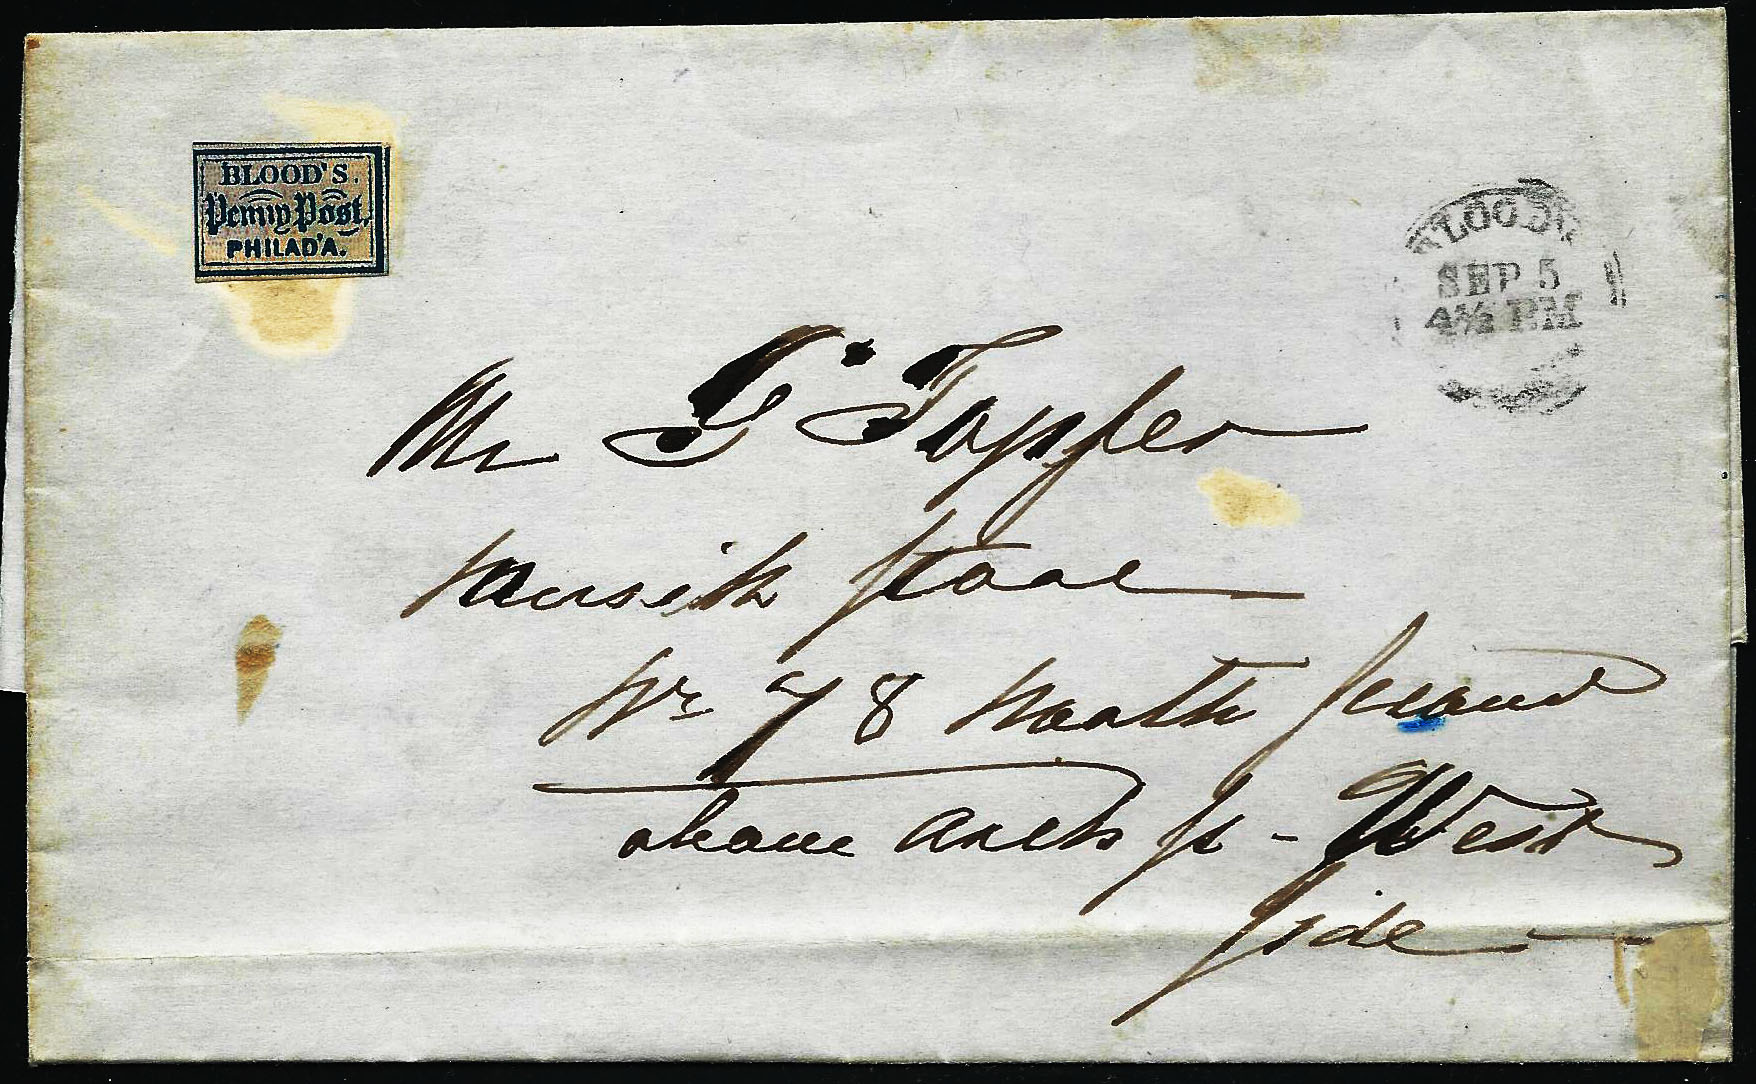 BLOOD'S.
Penny Post,
PHILAD'A.
BLOOD'S
SEP 5
4½ PM
Mr G. Topfer
Musik Stoore
Nr 78 North Second
above Arch St - West
Side